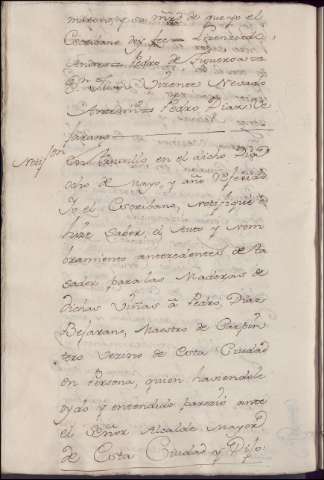 mariano, y su mrd de que yo el
Escribano doy fee = Lizenciado
Pedro de Figueroa
Vicente Nevado
Antemi = Pedro Diaz de
Notifon
En Trujillo, en el dicho Dia
ocho de Mayo, y año referido
Yo el Escribano, Notifiqué e
hize saber, el Auto y Nom
bramiento antecedentes de ta
sador para las Maderas de
dichas Viñas â Pedro Diaz
Bejarano, Maestro de Carpin
tero Vezino de esta Ciudad
en Persona, quien haviendole
oydo y entendido parezió ante
el Señor Alcalde Mayor
de esta Ciudad y Dijo